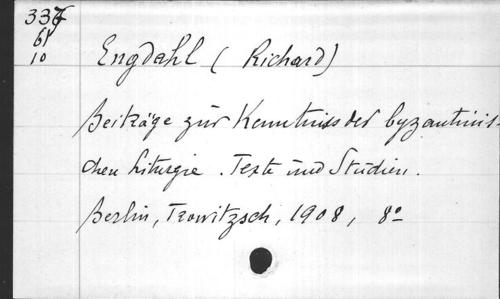 337
61
10
Engdahl (Richard)
Beiträge zur Kenntniss der byzantinis-
chen Liturgie. Texte und Studien.
Berlin, Trowitzsch, 1908, 8°